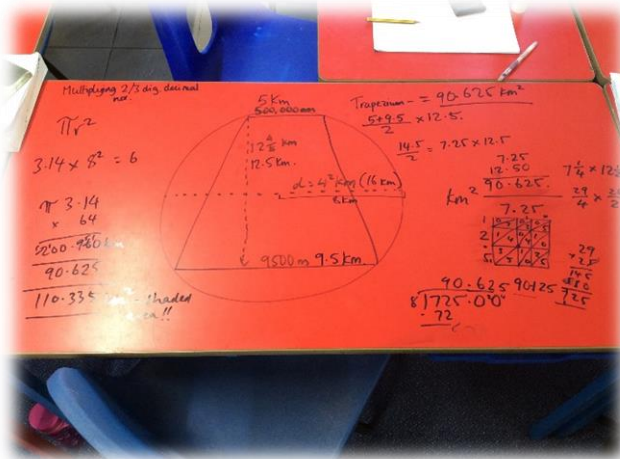 Multiplying 2/3 dig. decimal
nos.
πr²
3.14 × 8² = 6
π 3.14
× 64
200.960
90.625
110.335
shaded
area!!
5km
500,000
12 4/8 km
12.5km.
d = 4² km (16 km)
8km
9500m 9.5km
Trapezium = 90.625 km²
5+9.5 × 12.5.
2
14.5 = 7.25 × 12.5
2
7.25
12.50
90.625.
km²
7.25
7 1/4 × 12
29 ×
4
29
× 25
145
580
725
90.625
8)725.000
- 72